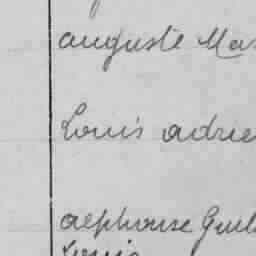 auguste Mas
Louis adrie
alphonse Guil
Louis